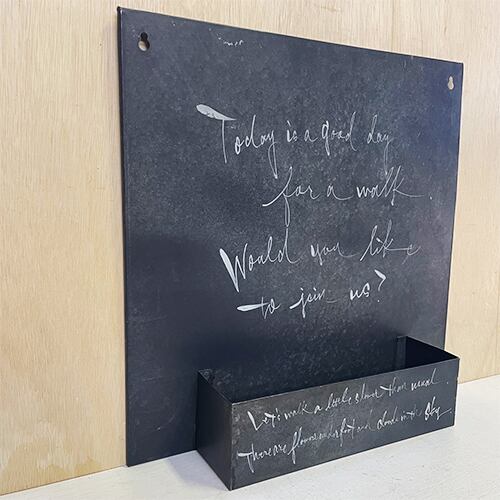 Today is a good day
for a walk.
Would you like
to join us?
Let's walk a little slower than usual.
There are flowers underfoot and clouds in the sky.